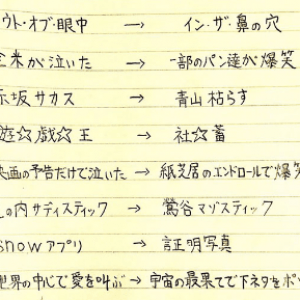 ウト・オブ・眼中 → イン・ザ・鼻の穴
米が泣いた → 一部のパン達が爆笑
坂サカス → 青山枯らす
遊☆戯☆王 → 社☆畜
画の予告だけで泣いた → 紙芝居のエンドロールで爆笑
の内サディスティック → 鶯谷マゾスティック
snowアプリ → 証明写真
世界の中心で愛を叫ぶ → 宇宙の最果てで下ネタをボ